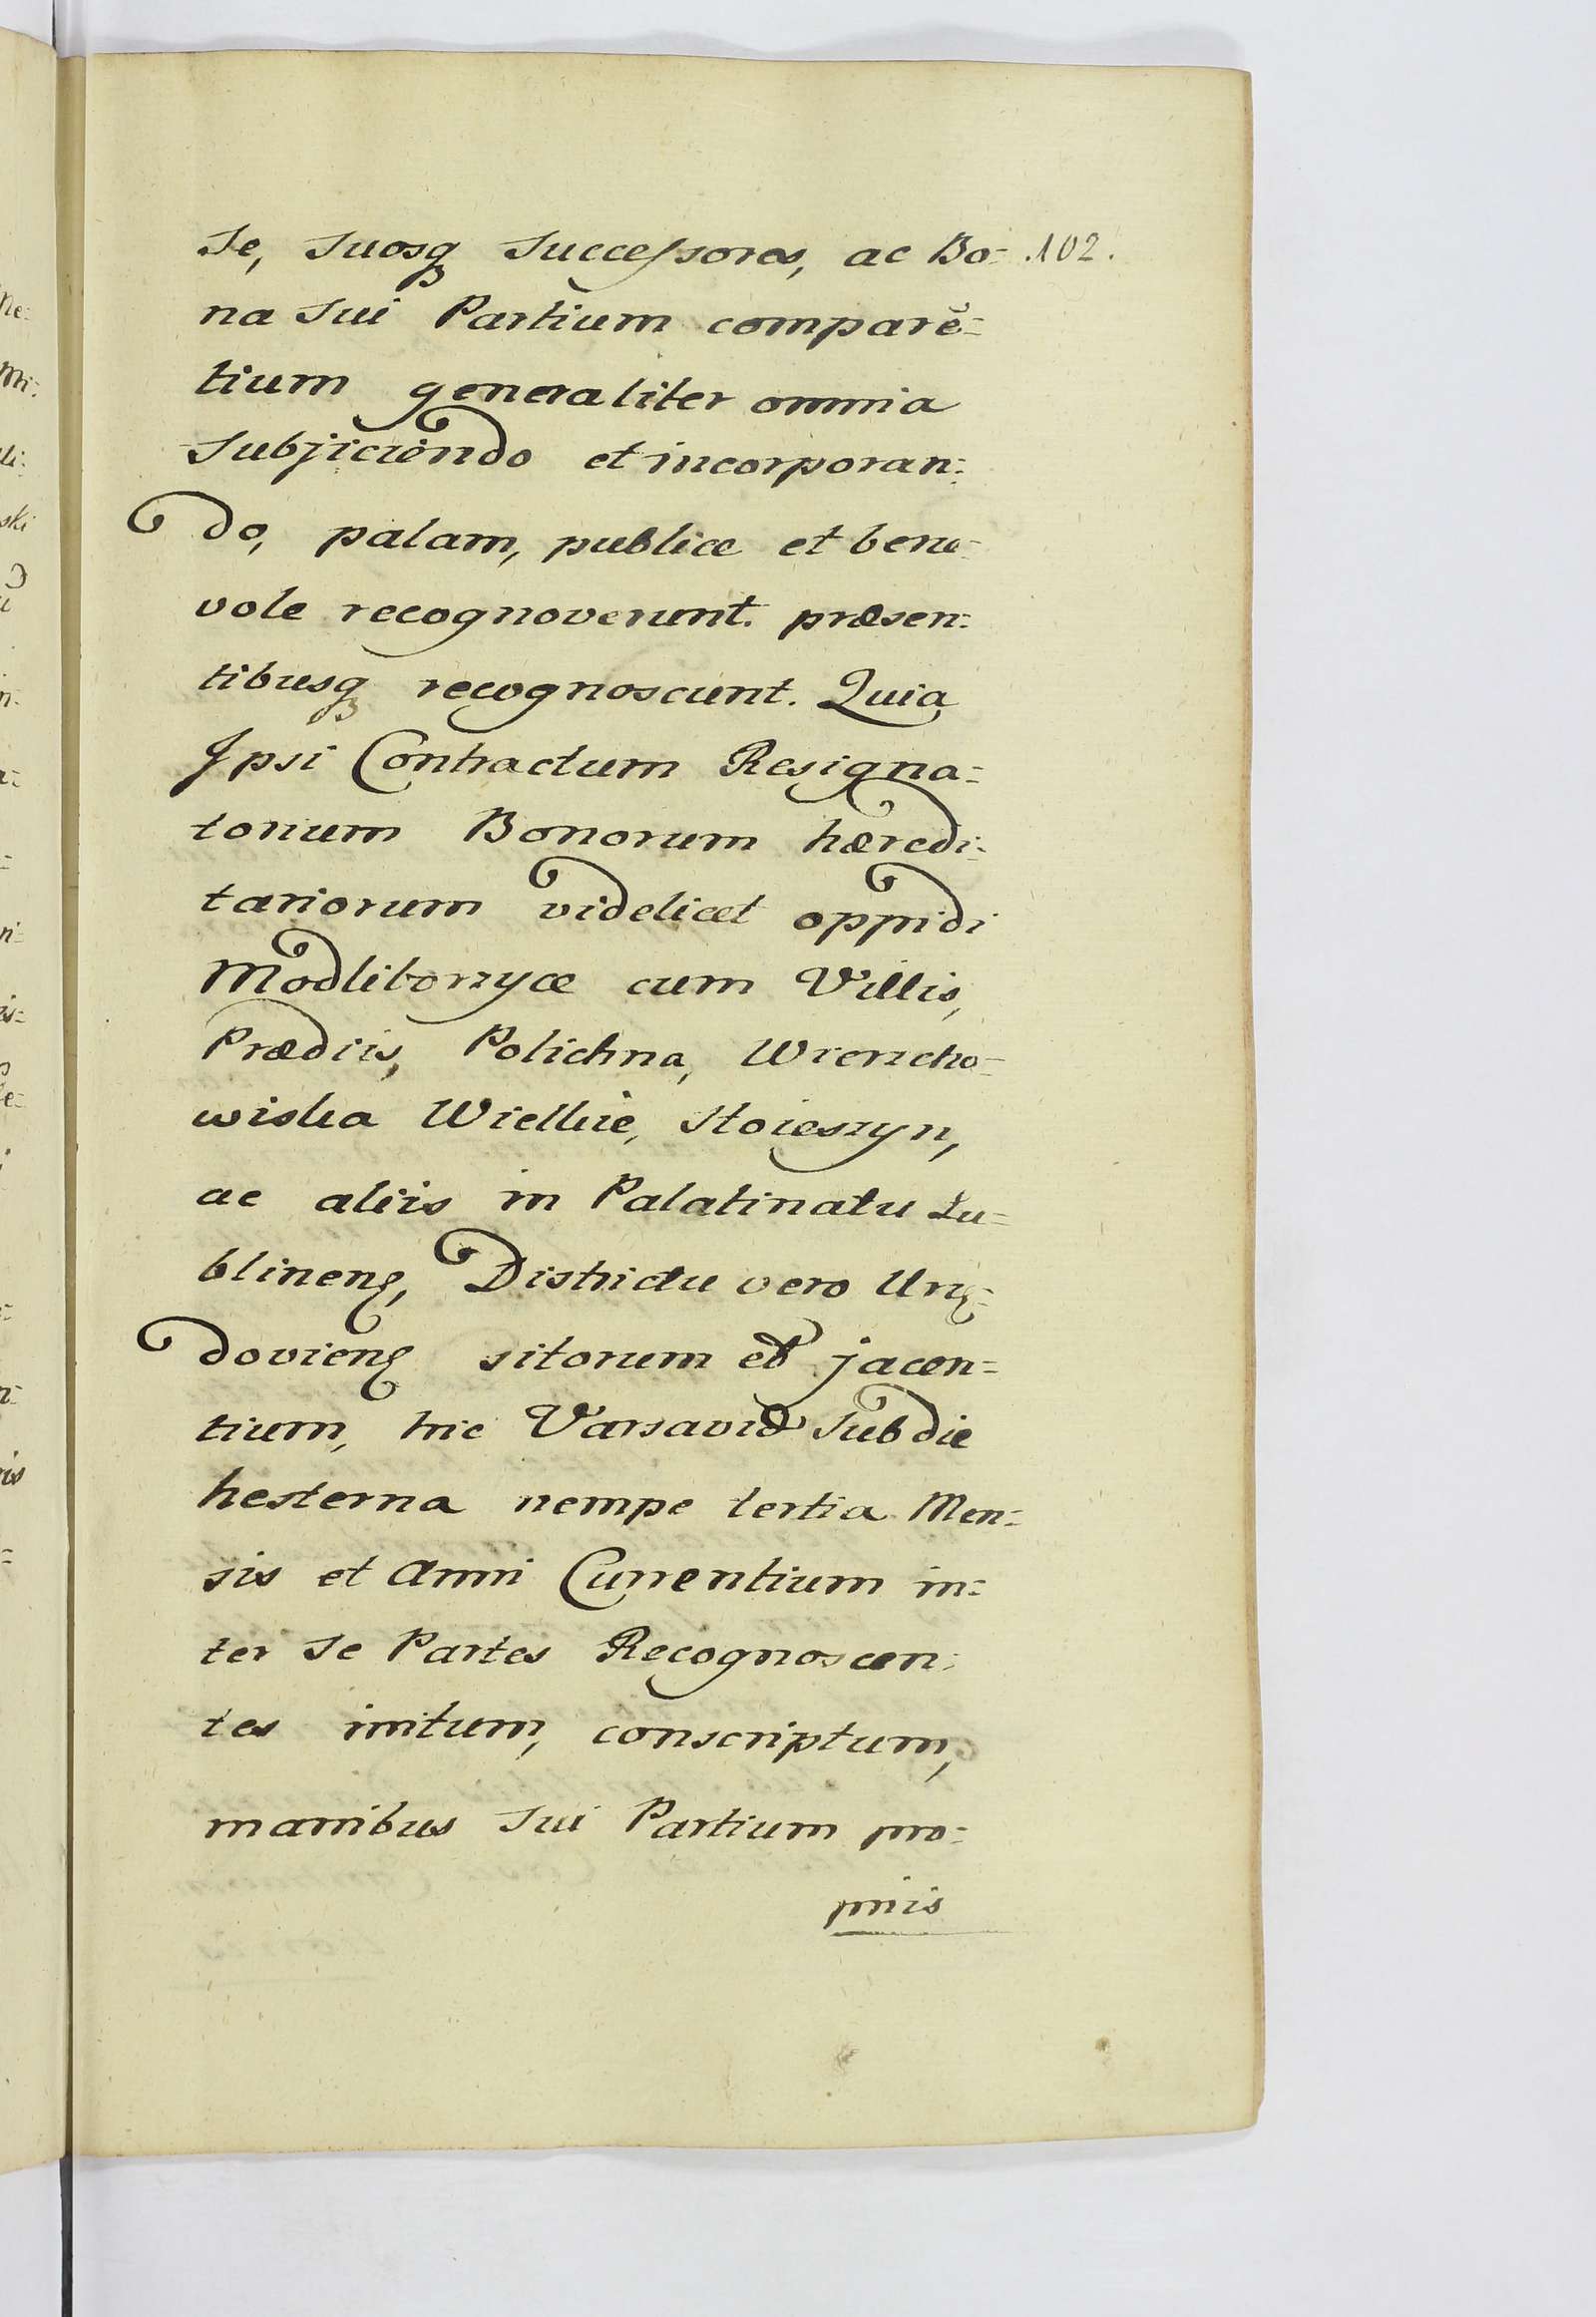 Se, Suosq₃ Successores, ac Bo= .102.
na Sui Partium comparē=
tium generaliter omnia
Subjiciendo et incorporan=
do, palam, publice et bene=
vole recognoverunt. præsen=
tibusq₃ recognoscunt. Quia
Ipsi Contractum Resigna=
torium Bonorum hæredi=
tariorum videlicet oppidi
Modliborzyce cum Villis,
Prædiis, Polichna, Wierzcho=
wiska Wielkie, Stojeszyn,
ac aliis in Palatinatu Lu=
blinenȝ, Districtu vero Urzȩ=
dovienȝ sitorum et jacen=
tium, hic Varsaviæ Sub die
hesterna nempe tertia Men=
sis et Anni Currentium in=
ter Se Partes Recognoscen=
tes initum, conscriptum,
manibus Sui Partium pro=
priis